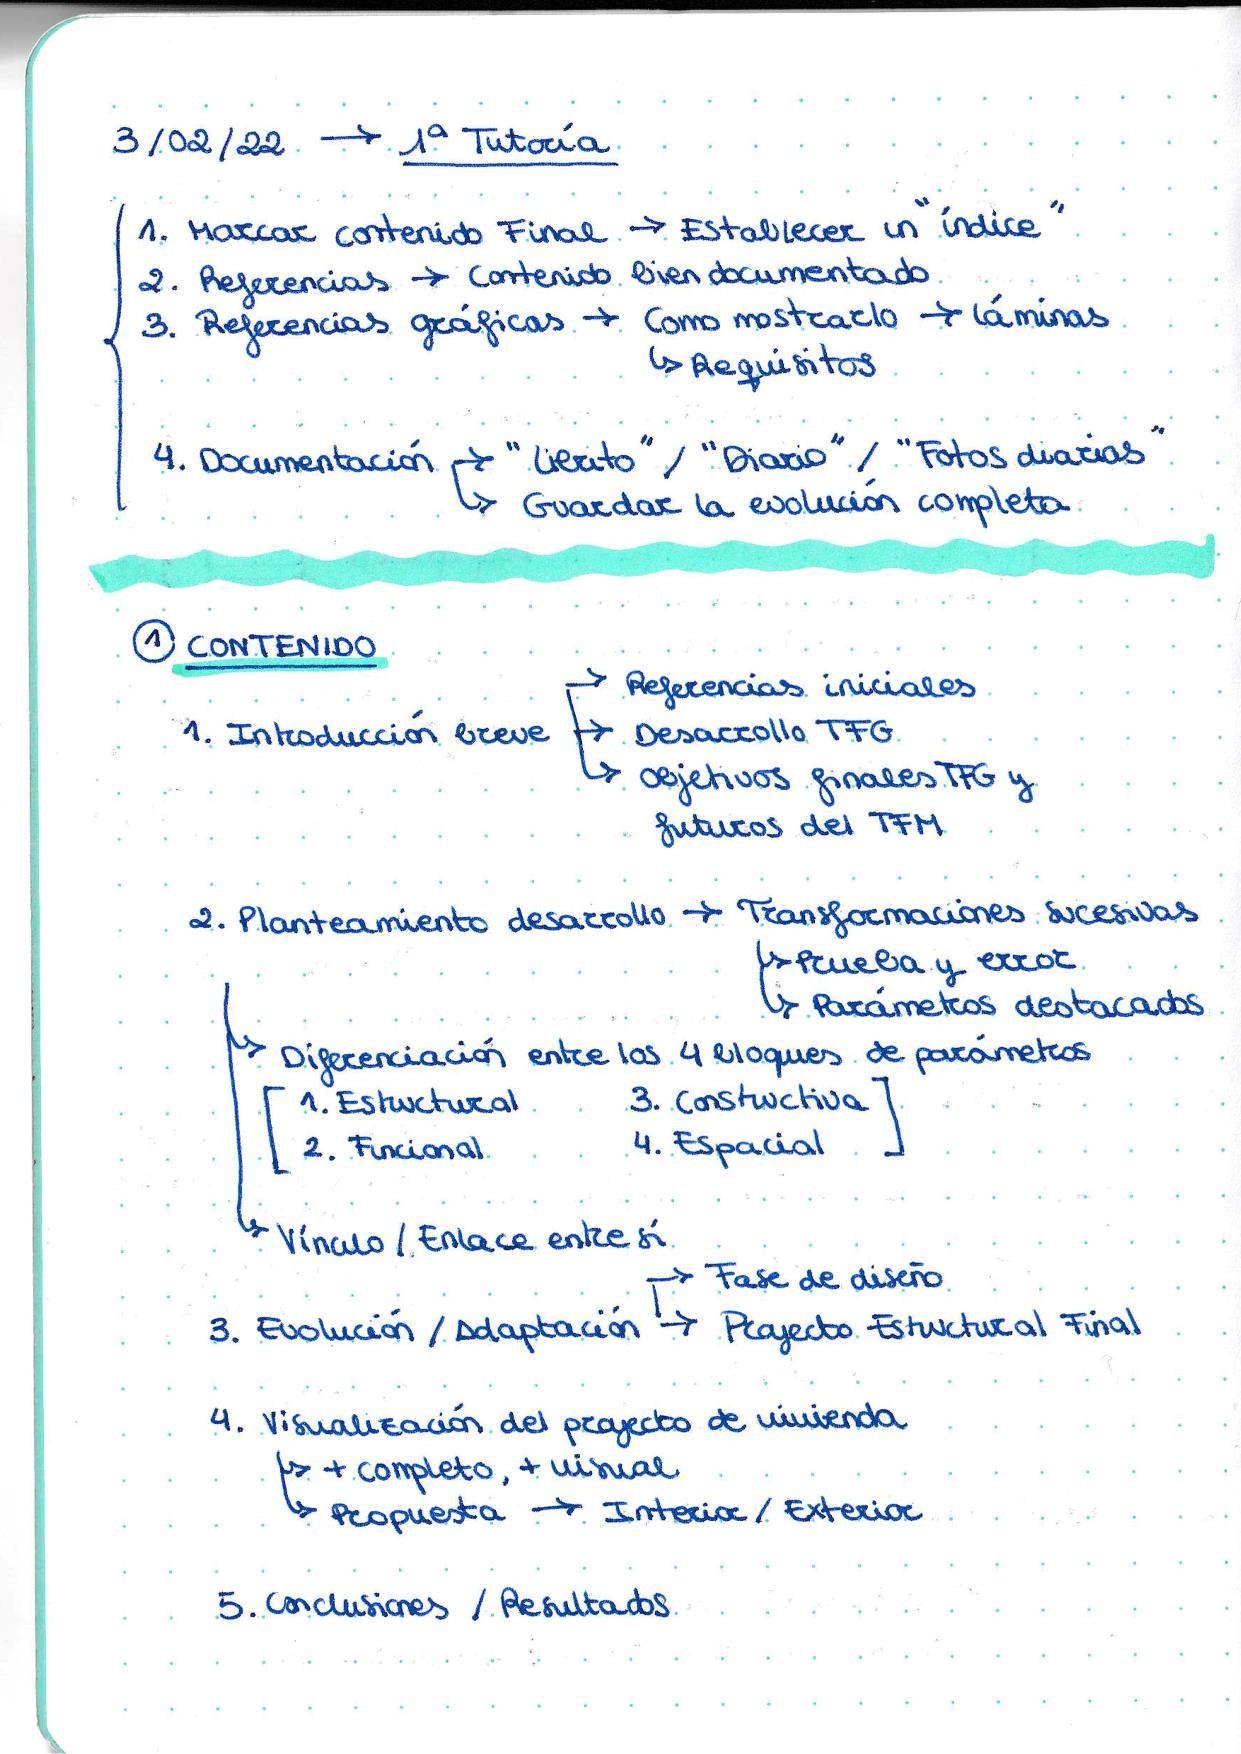 3/02/22 → 1ª Tutoría
1. Marcar contenido Final → Establecer un "índice"
2. Referencias → Contenido bien documentado
3. Referencias gráficas → Como mostrarlo → Láminas
↳ Requisitos
4. Documentación → "Librito" / "Diario" / "Fotos diarias"
↳ Guardar la evolución completa
① CONTENIDO
→ Referencias iniciales
1. Introducción breve → Desarrollo TFG
↳ Objetivos finales TFG y
futuros del TFM
2. Planteamiento desarrollo → Transformaciones sucesivas
↳ Prueba y error
↳ Parámetros destacados
↳ Diferenciación entre los 4 bloques de parámetros
[ 1. Estructural 3. Constructiva ]
[ 2. Funcional 4. Espacial ]
↳ Vínculo / Enlace entre sí
→ Fase de diseño
3. Evolución / Adaptación → Proyecto Estructural Final
4. Visualización del proyecto de vivienda
↳ + completo, + visual
↳ Propuesta → Interior / Exterior
5. Conclusiones / Resultados